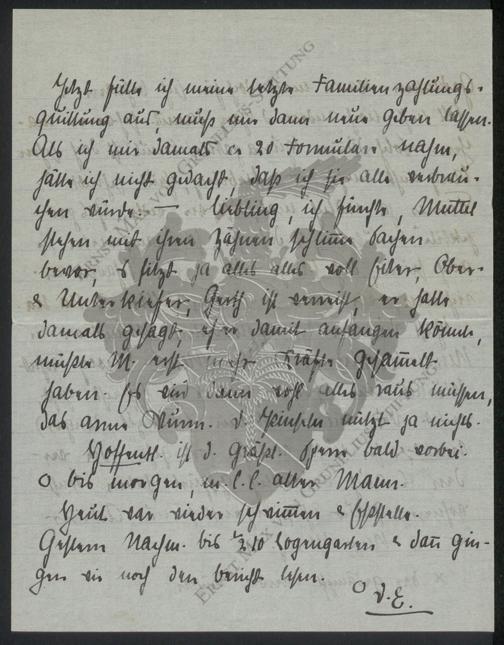 Jetzt fülle ich meine letzte Familienzahlungs-
quittung aus, muß mir dann neue geben lassen.
Als ich mir damals ca 20 Formulare nahm,
hätte ich nicht gedacht, daß ich sie alle verbrau-
chen würde. — Liebling, ich fürchte, Muttel
stehen mit ihren Zähnen schlimme Sachen
bevor, es sitzt ja alles alles voll Eiter, Ober-
& Unterkiefer, Gerth ist verreist, er hatte
damals gesagt, ehe er damit anfangen könnte,
müßte M. erst mehr Kräfte gesammelt
haben. Es wird dann wohl alles raus müssen,
das arme Wurm. D. Pinseln nützt ja nichts.
Hoffentl. ist d. gräßl. Sperre bald vorbei.
O bis morgen, m. l. l. alter Mann.
Heut war wieder schwimmen &
Gestern Nachm. bis 1/2 10 Logengarten & dann gin-
gen wir noch den Bericht lesen.
O D. E.
Ernst Max von Grunelius-Stiftung
Ernst Max von Grunelius-Stiftung